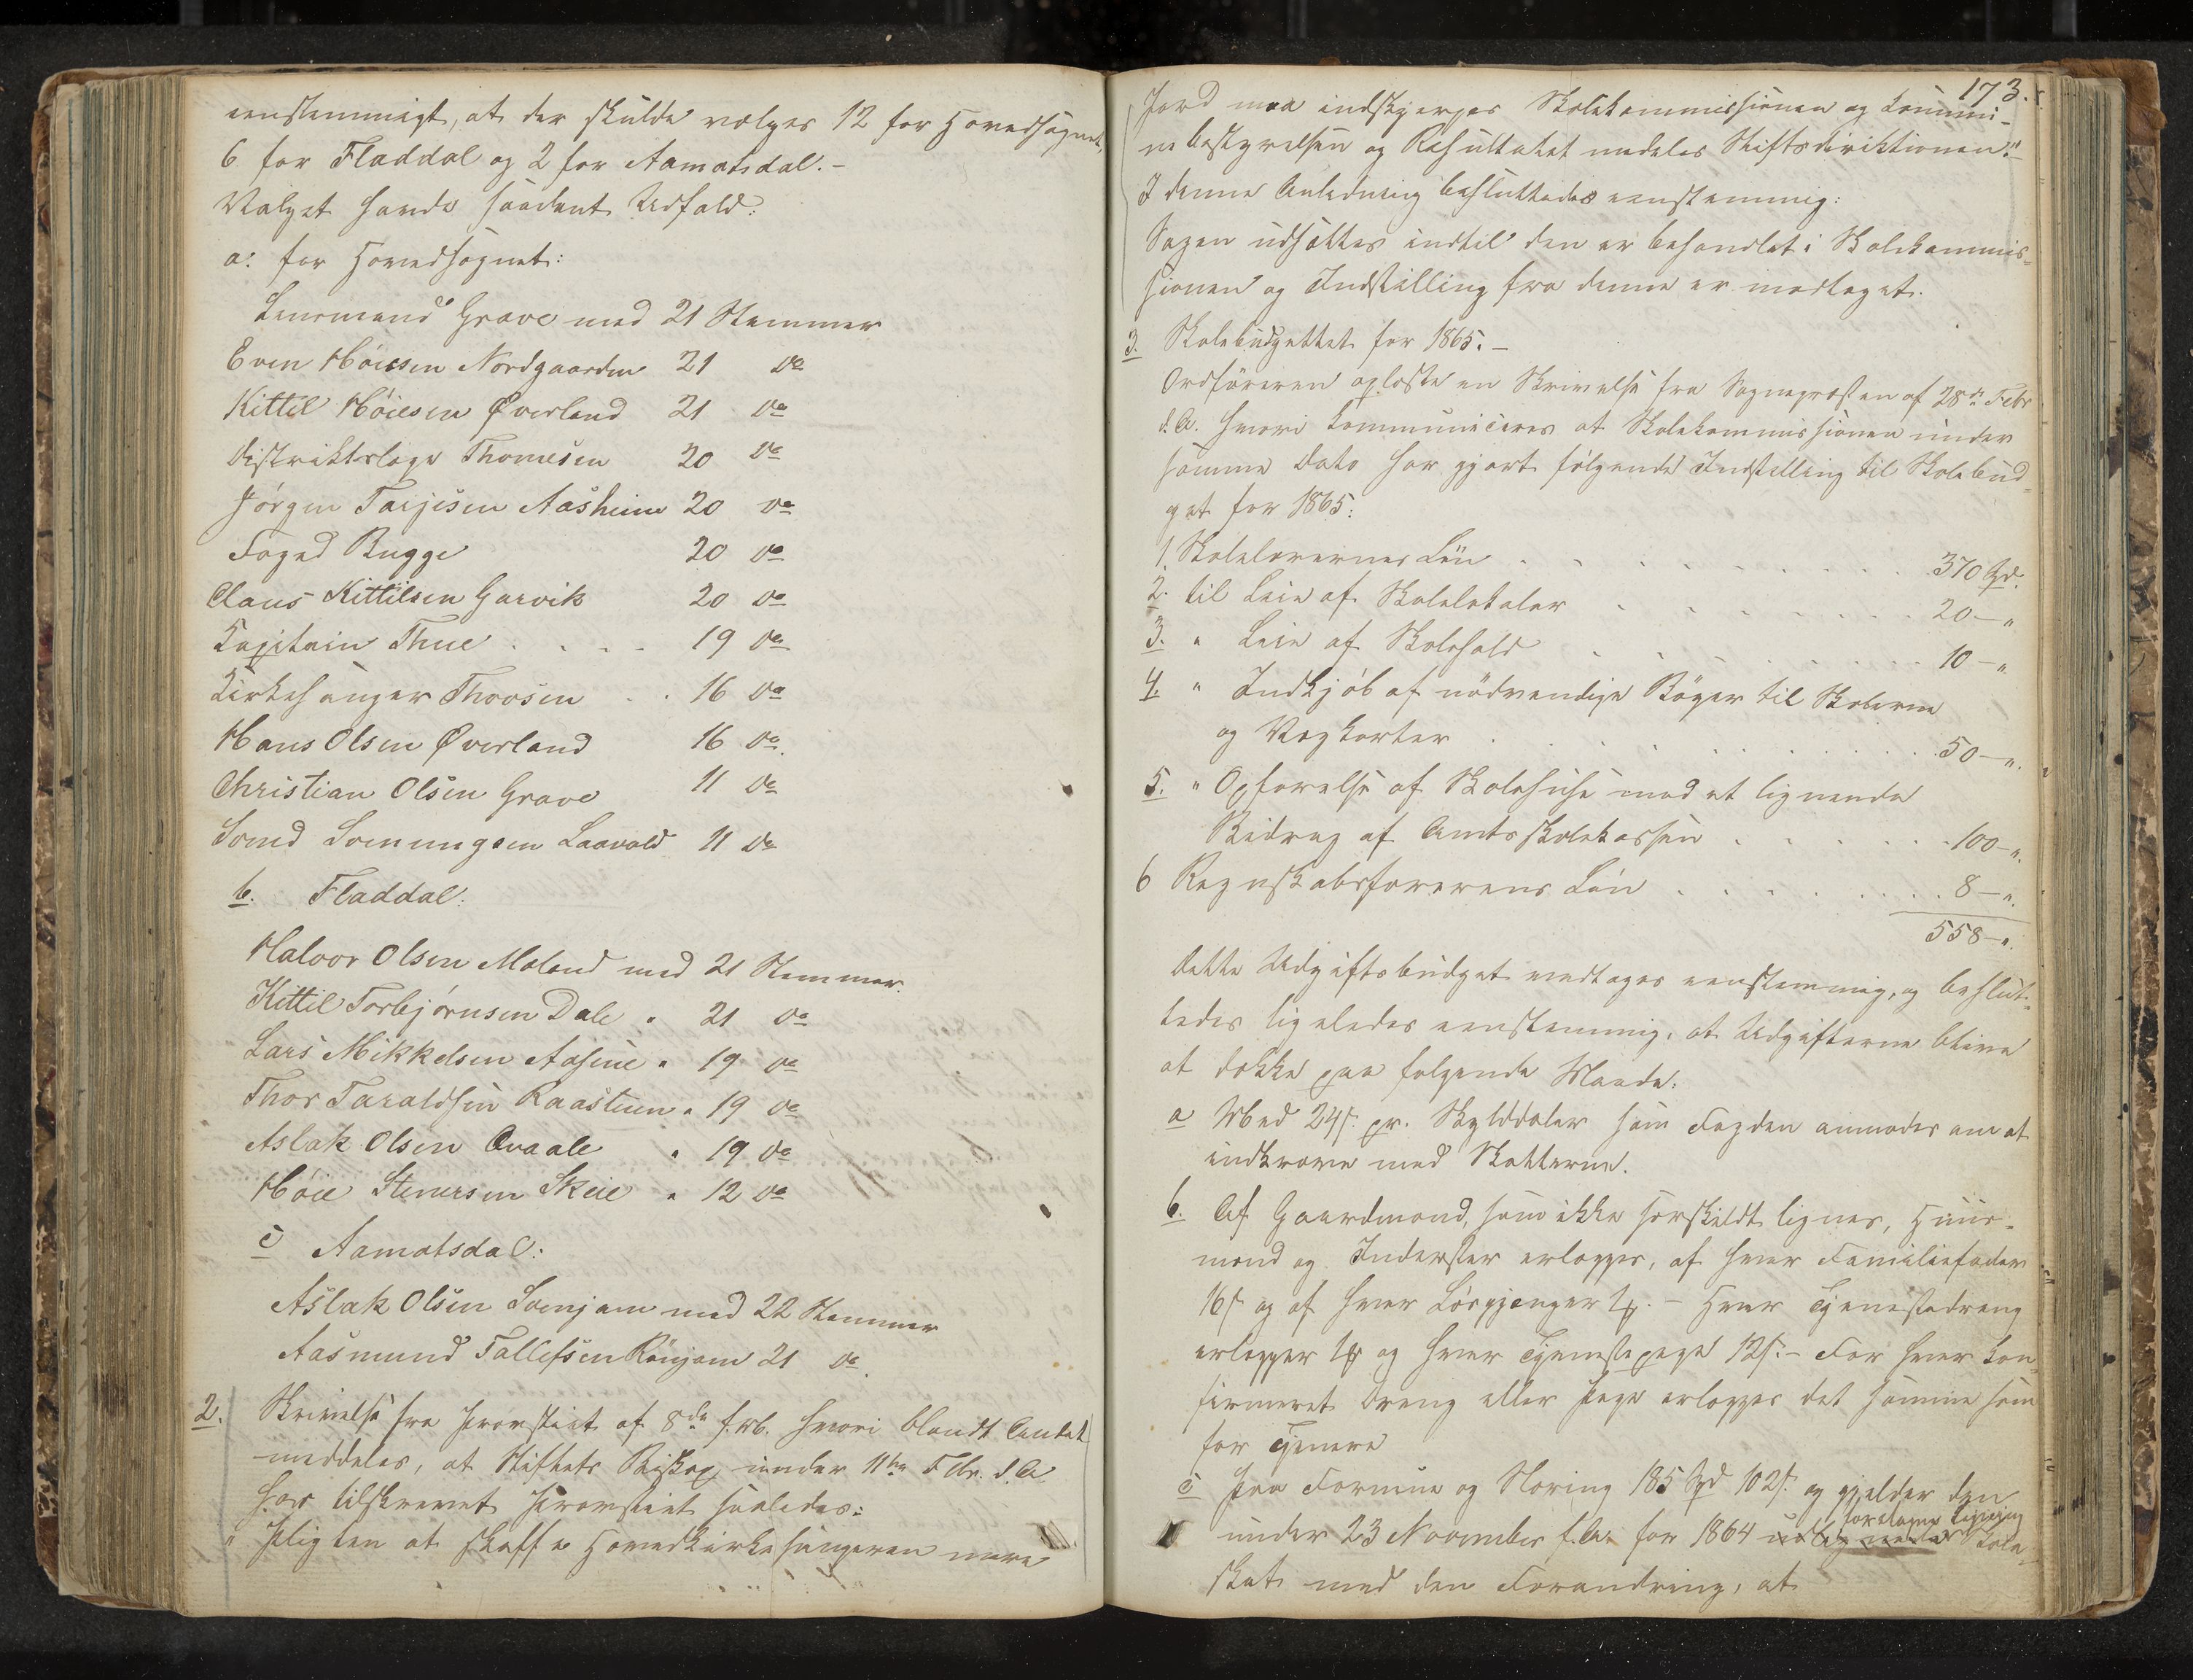 eenstemmigt, at der skulde vælges 12 for Hovedsognet,
6 for Fladdal og 2 for Aamotsdal.-
Valget havde saadant Udfald:
a: for Hovedsognet:
Lensmand Grave med 21 Stemmer
Even Höiesen Nordgaarden 21 do
Kittil Höiesen Øverland 21 do
Distriktslæge Thomesen 20 do
Jörgen Tarjesen Aasheim 20 do
Foged Bugge 20 do
Claus Kittilsen Garvik 20 do
Kapitain Thue . . . . 19 do
Kirkesanger Thorsen . . 16 do
Hans Olsen Øverland 16 do.
Christian Olsen Grave 11 do
Svend Svenungsen Laavald 11 do
b. Fladdal:
Halvor Olsen Moland med 21 Stemmer.
Kittil Torbjørnsen Dale " 21 do
Lars Mikkelsen Aasine " 19 do
Thor Taraldsen Raasteen " 19 do
Aslak Olsen Qvaale " 19 do
Höie Stenersen Skeie " 12 do
c Aamotsdal:
Aslak Olsen Svenjam med 22 Stemmer
Aasmund Tallefsen Rönjom 21 do.
2. Skrivelse fra Provstiet af 8de f. Mb. hvori blandt Andet
meddeles, at Stiftets Biskop under 11te Febr. d.A.
har tilskrevet Provstiet saaledes:
" Pligten at skaffe Hovedkirkesangeren mere
173.
Jord maa indskjerpes Skolekommissionen og Kommu-
nebestyrelsen og Resultatet meddeles Stiftsdirektionen."
I denne Anledning besluttedes eenstemmig:
Sagen udsættes indtil den er behandlet i Skolekommis-
sionen og Indstilling fra denne er modtaget.
3. Skolebudgettet for 1865.-
Ordføreren oplæste en Skrivelse fra Sognepræsten af 28de Febr
d.A. hvori kommuniceres at Skolekommissionen under
samme Dato har gjort følgende Indstilling til Skolebud-
get for 1865:
1. Skolelærernes Løn . . . . . . 370 Spd.
2. til Leie af Skolelokaler . . . . . . 20 — "
3. " Leie af Skolehold . . . . . . 10 — "
4. " Indkjöb af nödvendige Böger til Skolerne
og Vægkarter . . . . . . 50 — ".
5. " Opførelse af Skolehuse mod et lignende
Bidrag af Amtsskolekassen . . . . . 100 — ".
6 Regnskabsførerens Løn . . . . . . 8 — ".
558 — ".
Dette Udgiftsbudget vedtages eenstemmig, og beslut-
tedes ligeledes eenstemmig, at Udgifterne blive
at dække paa følgende Maade:
a Med 24 s. pr. Skylddaler som Fogden anmodes om at
indkræve med Skatterne.
b. Af Gaardmænd, som ikke særskildt lignes, Huus-
mænd og Inderster erlægges, af hver Familiefader
16 s. og af hver Løsgjænger 1 . - Hver Tjenestedreng
erlægger 1 og hver Tjenestepige 12 s. - For hver kon-
firmeret Dreng eller Pige erlægges det samme som
for Tjenere
c Paa Formue og Næring 185 Spd 102 s. og gjelder den
foretagne Ligning
under 23 November f.A. for 1864 Skole-
skat med den Forandring, at